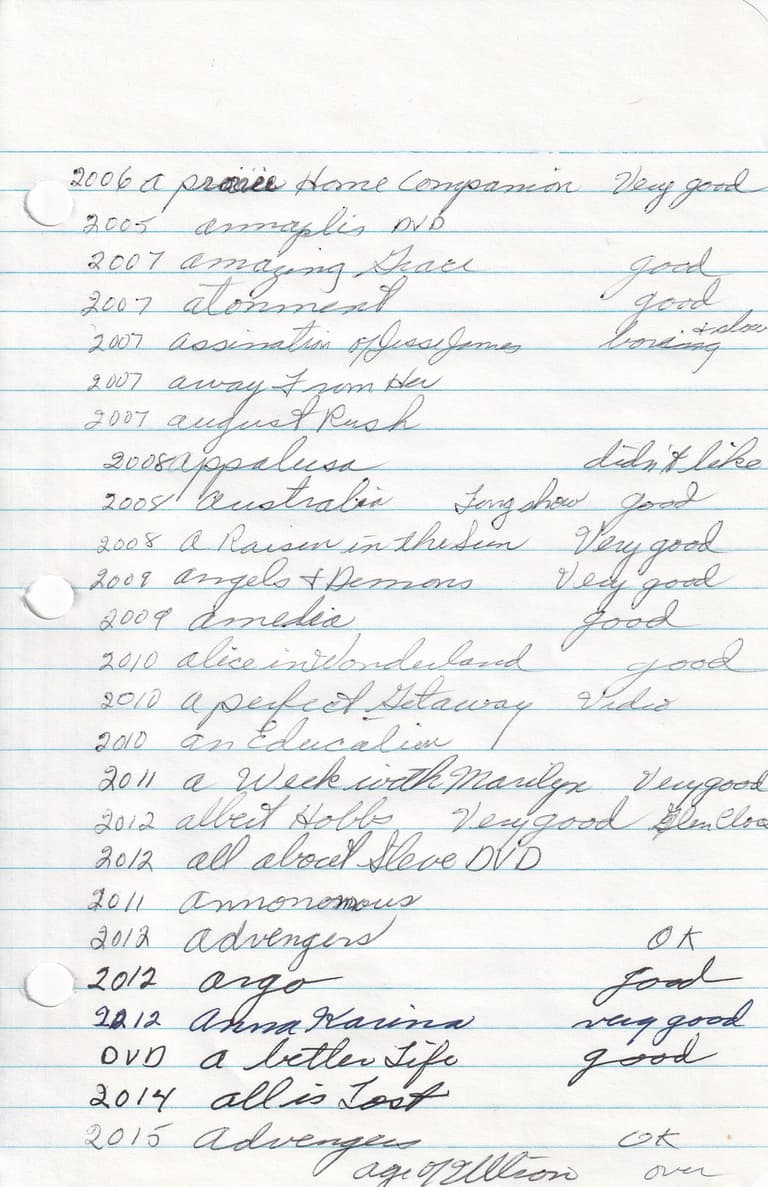 2006 a prairie Home Companion Very good
2005 annaplis DVD
2007 amazing Grace good
2007 atonment good
2007 assination of Jesse James boring & slow
2007 away From Her
2007 august Rush
2008 appalusa didn't like
2008 australia Long show good
2008 a Raisen in the Sun Very good
2009 angels & Demons Very good
2009 amedia good
2010 alice in Wonderland good
2010 a perfect Getaway Video
2010 an Education
2011 a Week with Marilyn Very good
2012 albert Hobbs Very good Glen Close
2012 all about Steve DVD
2011 annonomous
2012 advengers OK
2012 argo good
2012 Anna Karina very good
DVD a better Life good
2014 all is Lost
2015 advengers OK
age of Ultron over